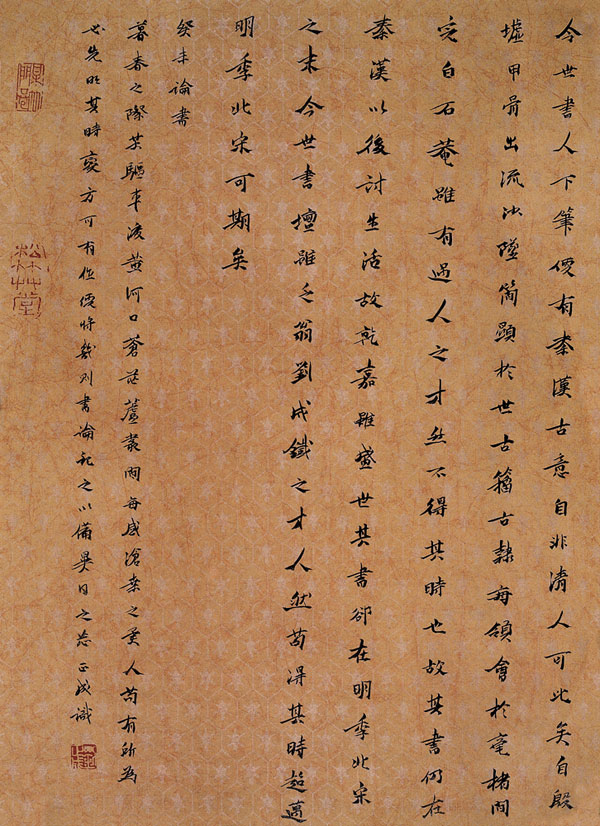 今世書人下筆便有秦漢古意自非清人可比矣自殷
墟甲骨出流沙墜簡顯於世古籀古隸每領會於毫楮間
完白石菴雖有過人之才然不得其時也故其書仍在
秦漢以後討生活故乾嘉雖盛世其書卻在明季北宋
之末今世書壇雖乏翁劉成鐵之才人然苟得其時超邁
明季北宋可期矣
癸未論書
暮春之際某驅車渡黃河口蒼茫蘆叢間每感滄桑之變人苟有所為
必先明其時變方可有位價時幾則書論記之以備異日之忘正成識
松竹草堂